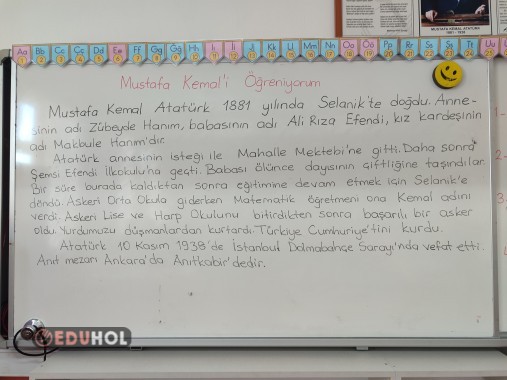 MUSTAFA KEMAL ATATÜRK
1881 - 1938
Aa Bb Cc Çç Dd Ee Ff Gg Ğğ Hh Iı İi Jj Kk Ll Mm Nn Oo Öö Pp Rr Ss Şş Tt Uu
Mustafa Kemal'i Öğreniyorum
Mustafa Kemal Atatürk 1881 yılında Selanik'te doğdu. Anne-
sinin adı Zübeyde Hanım, babasının adı Ali Rıza Efendi, kız kardeşinin
adı Makbule Hanım'dır.
Atatürk annesinin isteği ile Mahalle Mektebi'ne gitti. Daha sonra
Şemsi Efendi İlkokulu'na geçti. Babası ölünce dayısının çiftliğine taşındılar.
Bir süre burada kaldıktan sonra eğitimine devam etmek için Selanik'e
döndü. Askeri Orta Okula giderken Matematik öğretmeni ona Kemal adını
verdi. Askeri Lise ve Harp Okulunu bitirdikten sonra başarılı bir asker
oldu. Yurdumuzu düşmanlardan kurtardı. Türkiye Cumhuriye'tini kurdu.
Atatürk 10 Kasım 1938'de İstanbul Dolmabahçe Sarayı'nda vefat etti.
Anıt mezarı Ankara'da Anıtkabir'dedir.
EDUHOL